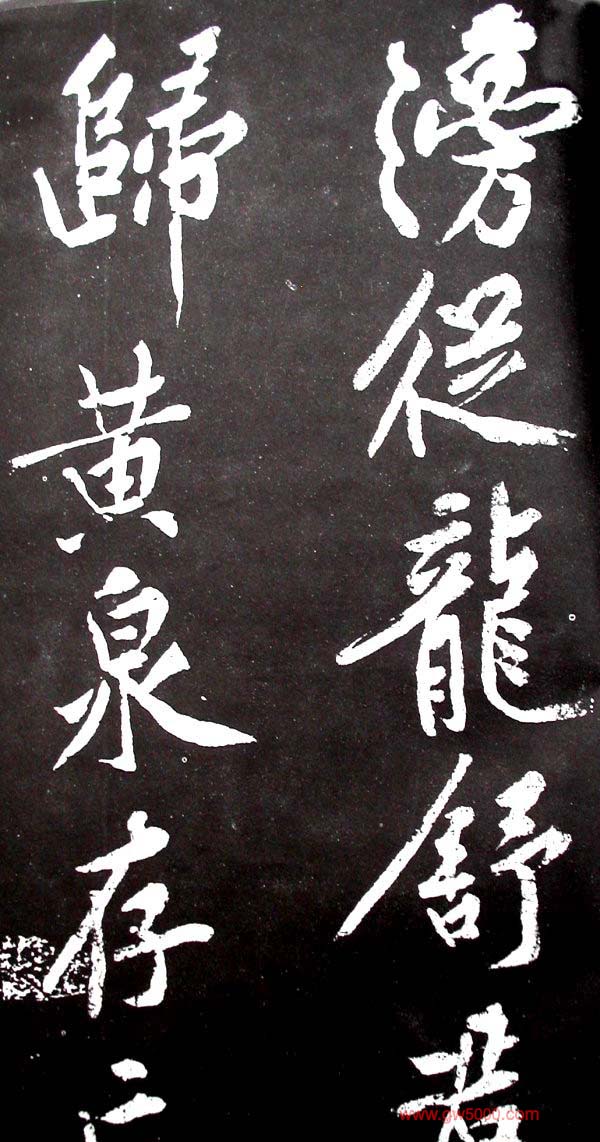 滂從龍舒君
歸黃泉存亡
www.gw5000.com